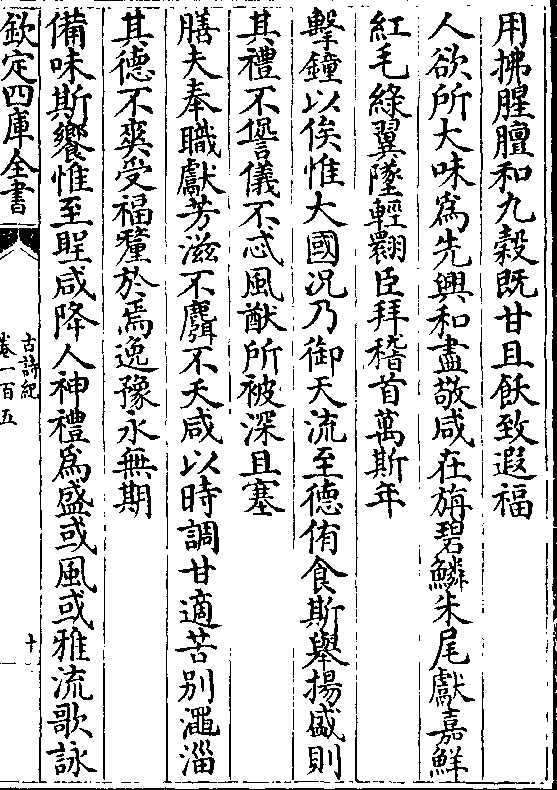 用拂腥膻和九穀既甘且飫致遐福
人欲所大味為先興和盡敬咸在旃碧鱗朱尾獻嘉鮮
紅毛綠翼墜輕翾臣拜稽首萬斯年
擊鐘以俟惟大國况乃御天流至德侑食斯舉揚盛則
其禮不諐儀不忒風猷所被深且塞
膳夫奉職獻芳滋不麛不夭咸以時調甘適苦别澠淄
其德不爽受福釐於焉逸豫永無期
備味斯饗惟至聖咸降人神禮為盛或風或雅流歌詠
欽定四庫全書
古詩紀
卷一百五
十